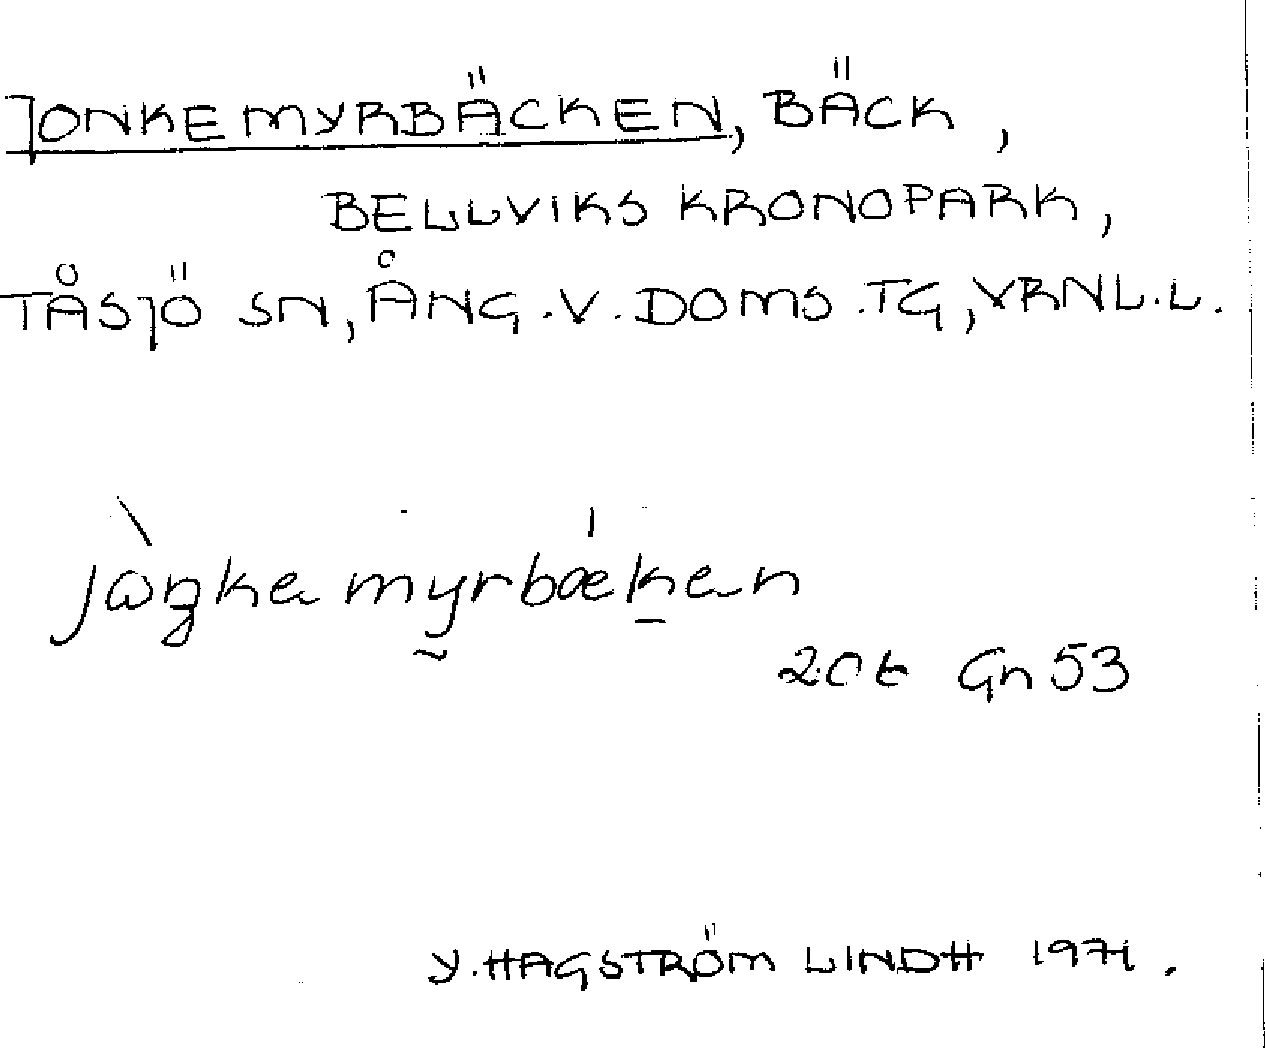 JONKEMYRBÄCKEN, BÄCK,
BELLVIKS KRONOPARK,
TÅSJÖ SN, ÅNG.V.DOMS.TG, VRNL.L.
20t Gn53
Y.HAGSTRÖM LINDH 1971.